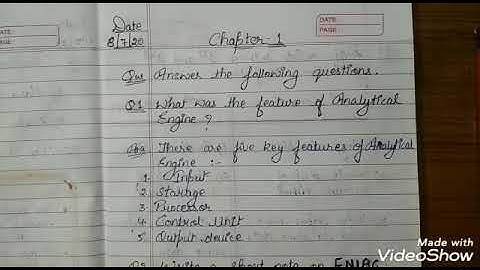 DATE:
PAGE:
Date
8/7/20
Chapter-1
DATE:
PAGE:
Que Answer the following questions.
Q1 What was the feature of Analytical
Engine?
Ans There are five key features of Analytical
Engine :-
1. Input
2. Storage
3. Processor
4. Control Unit
5. Output device
Q2 Write a short note on ENIAC
Made with
VideoShow